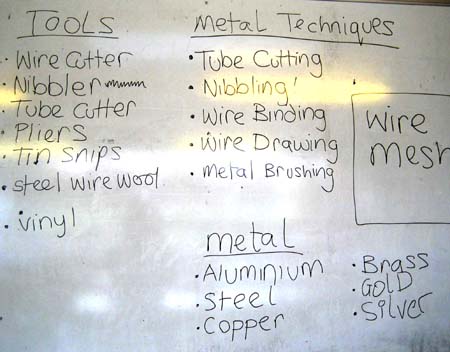 TOOLS
• Wire Cutter
• Nibbler
• Tube Cutter
• Pliers
• Tin Snips
• Steel Wire Wool
• Vinyl
Metal Techniques
• Tube Cutting
• Nibbling!
• Wire Binding
• Wire Drawing
• Metal Brushing
Wire
mesh
metal
• Aluminium
• Steel
• Copper
• Brass
• GOLD
• Silver